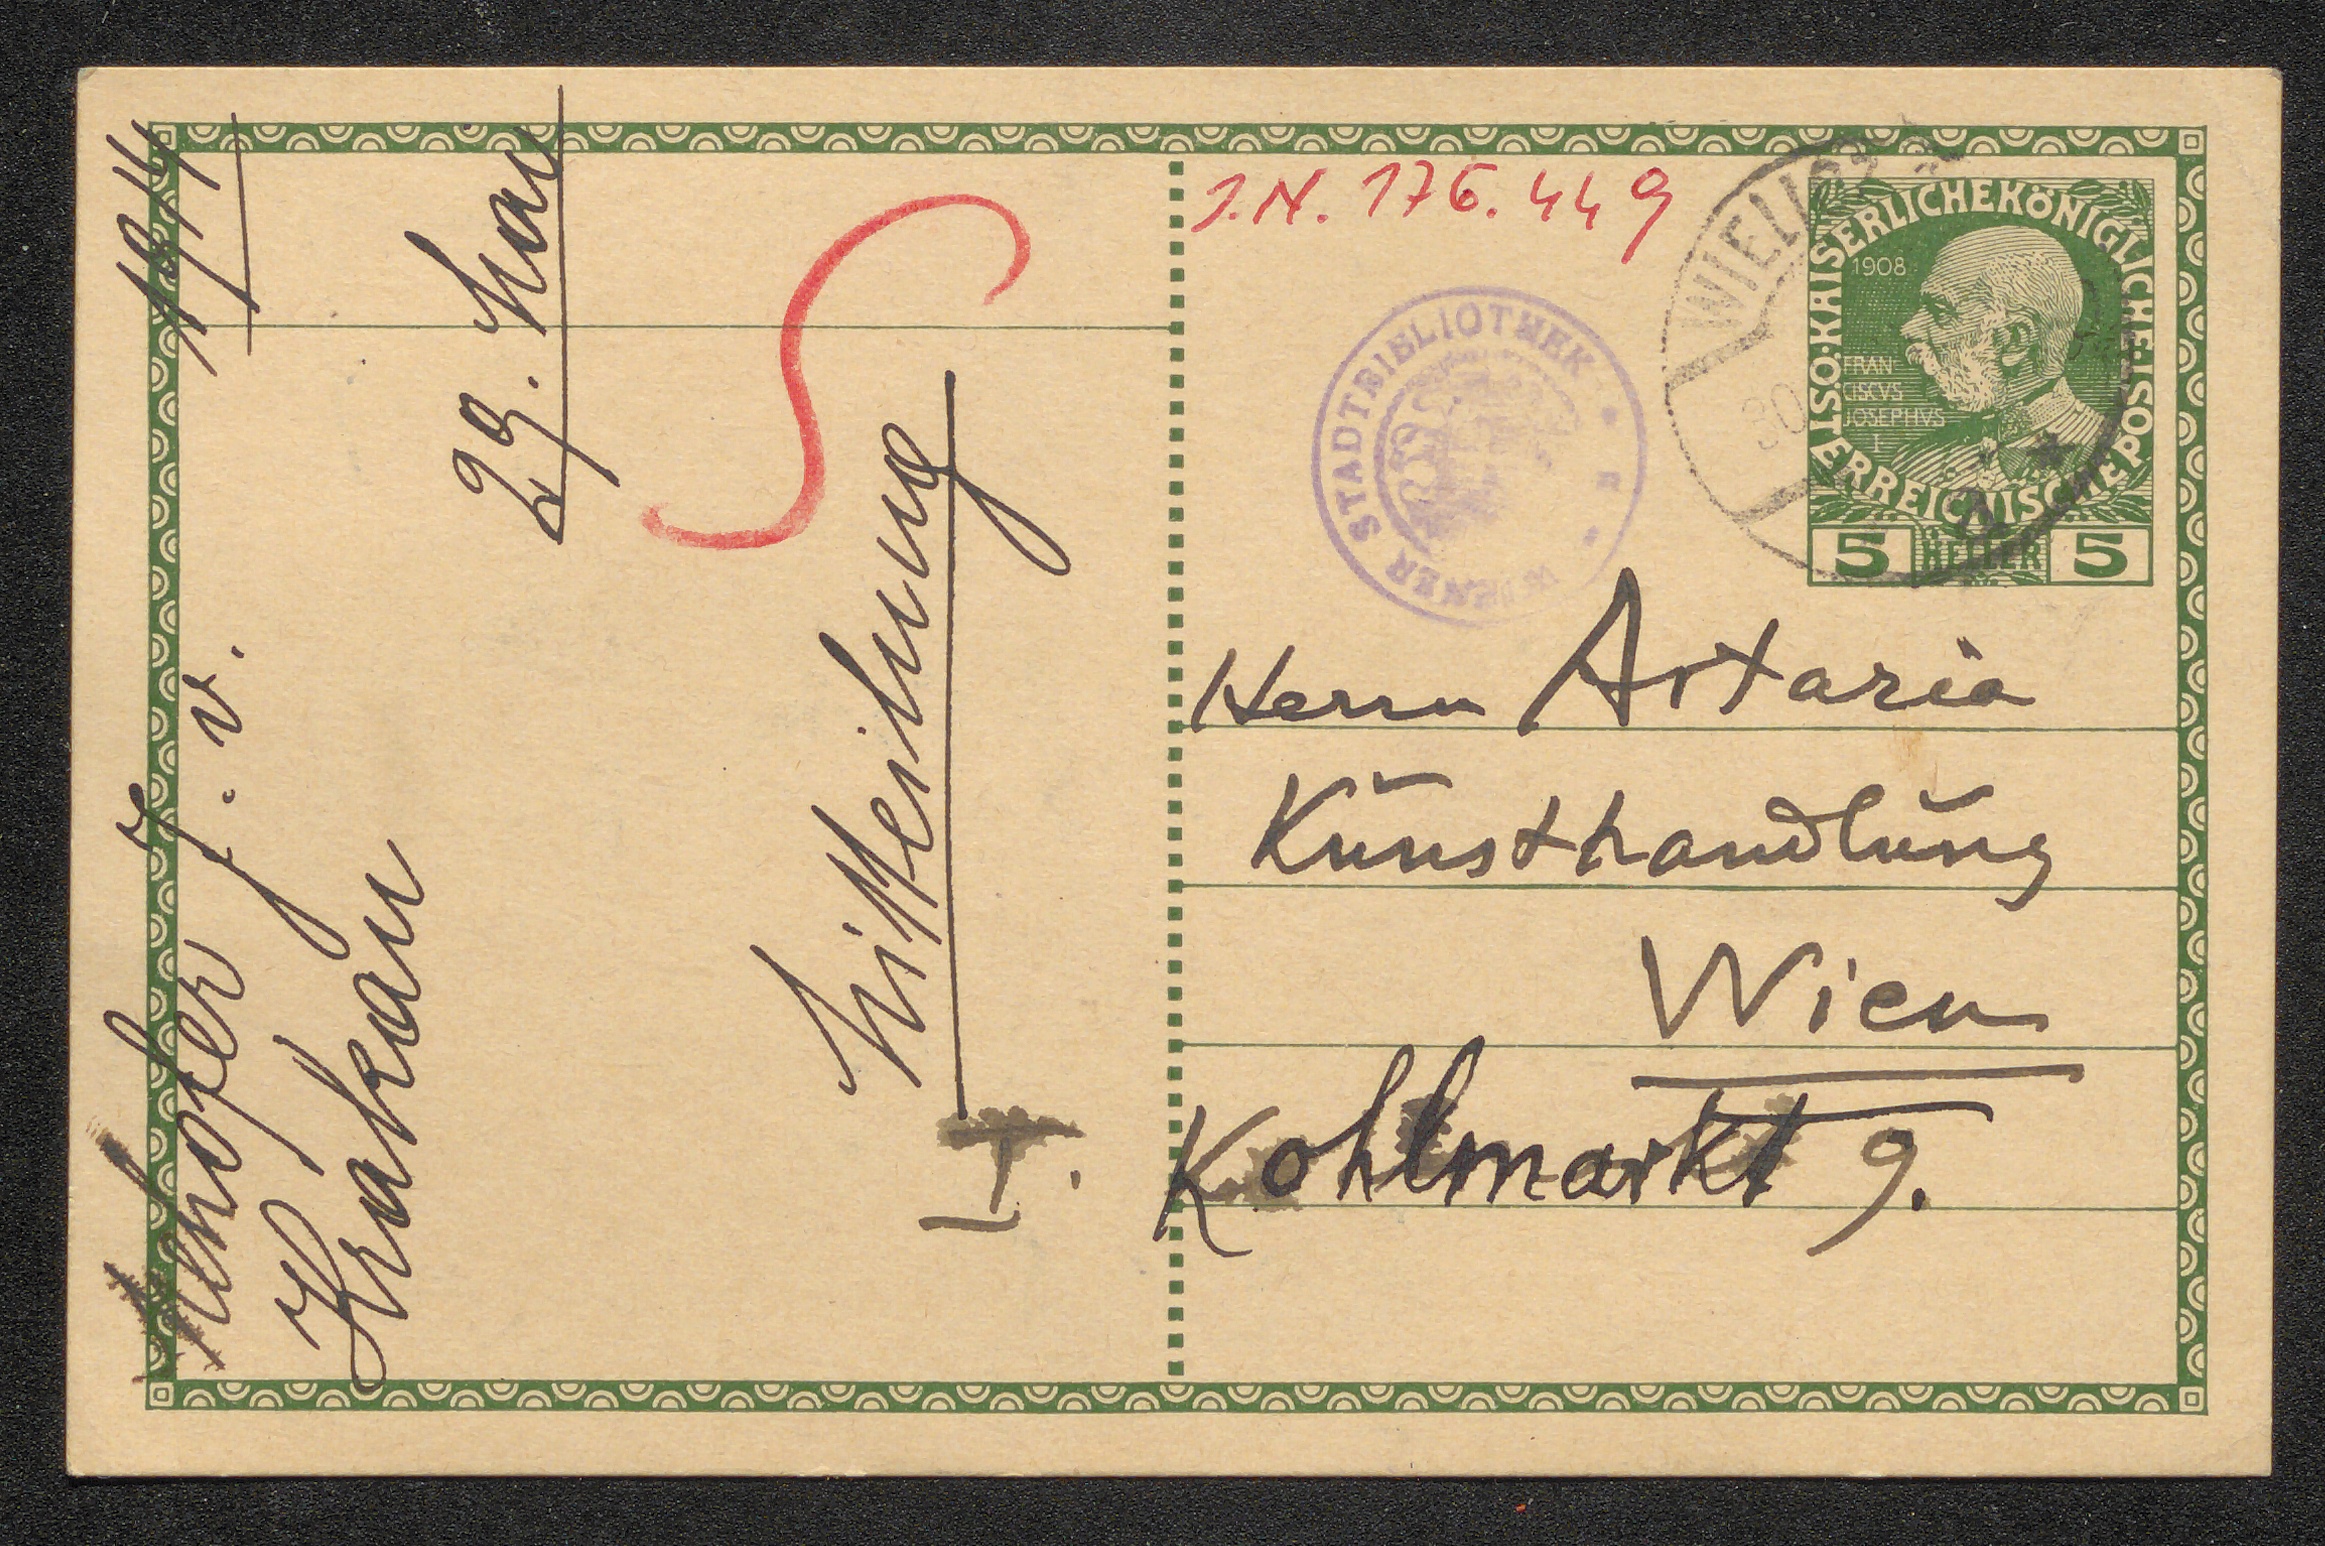 1914
Mehofer J. v.
Krakau
29. Mai
Mitteilung
J.N. 176.449
WIENER STADTBIBLIOTHEK
WIELICZ
30
KAISERLICHEKÖNIGLICHE
ÖSTERREICHISCHE POST
1908
FRAN
CISCVS
JOSEPHVS
I
5 HELLER 5
Herrn Artaria
Kunsthandlung
Wien
Kohlmarkt 9.